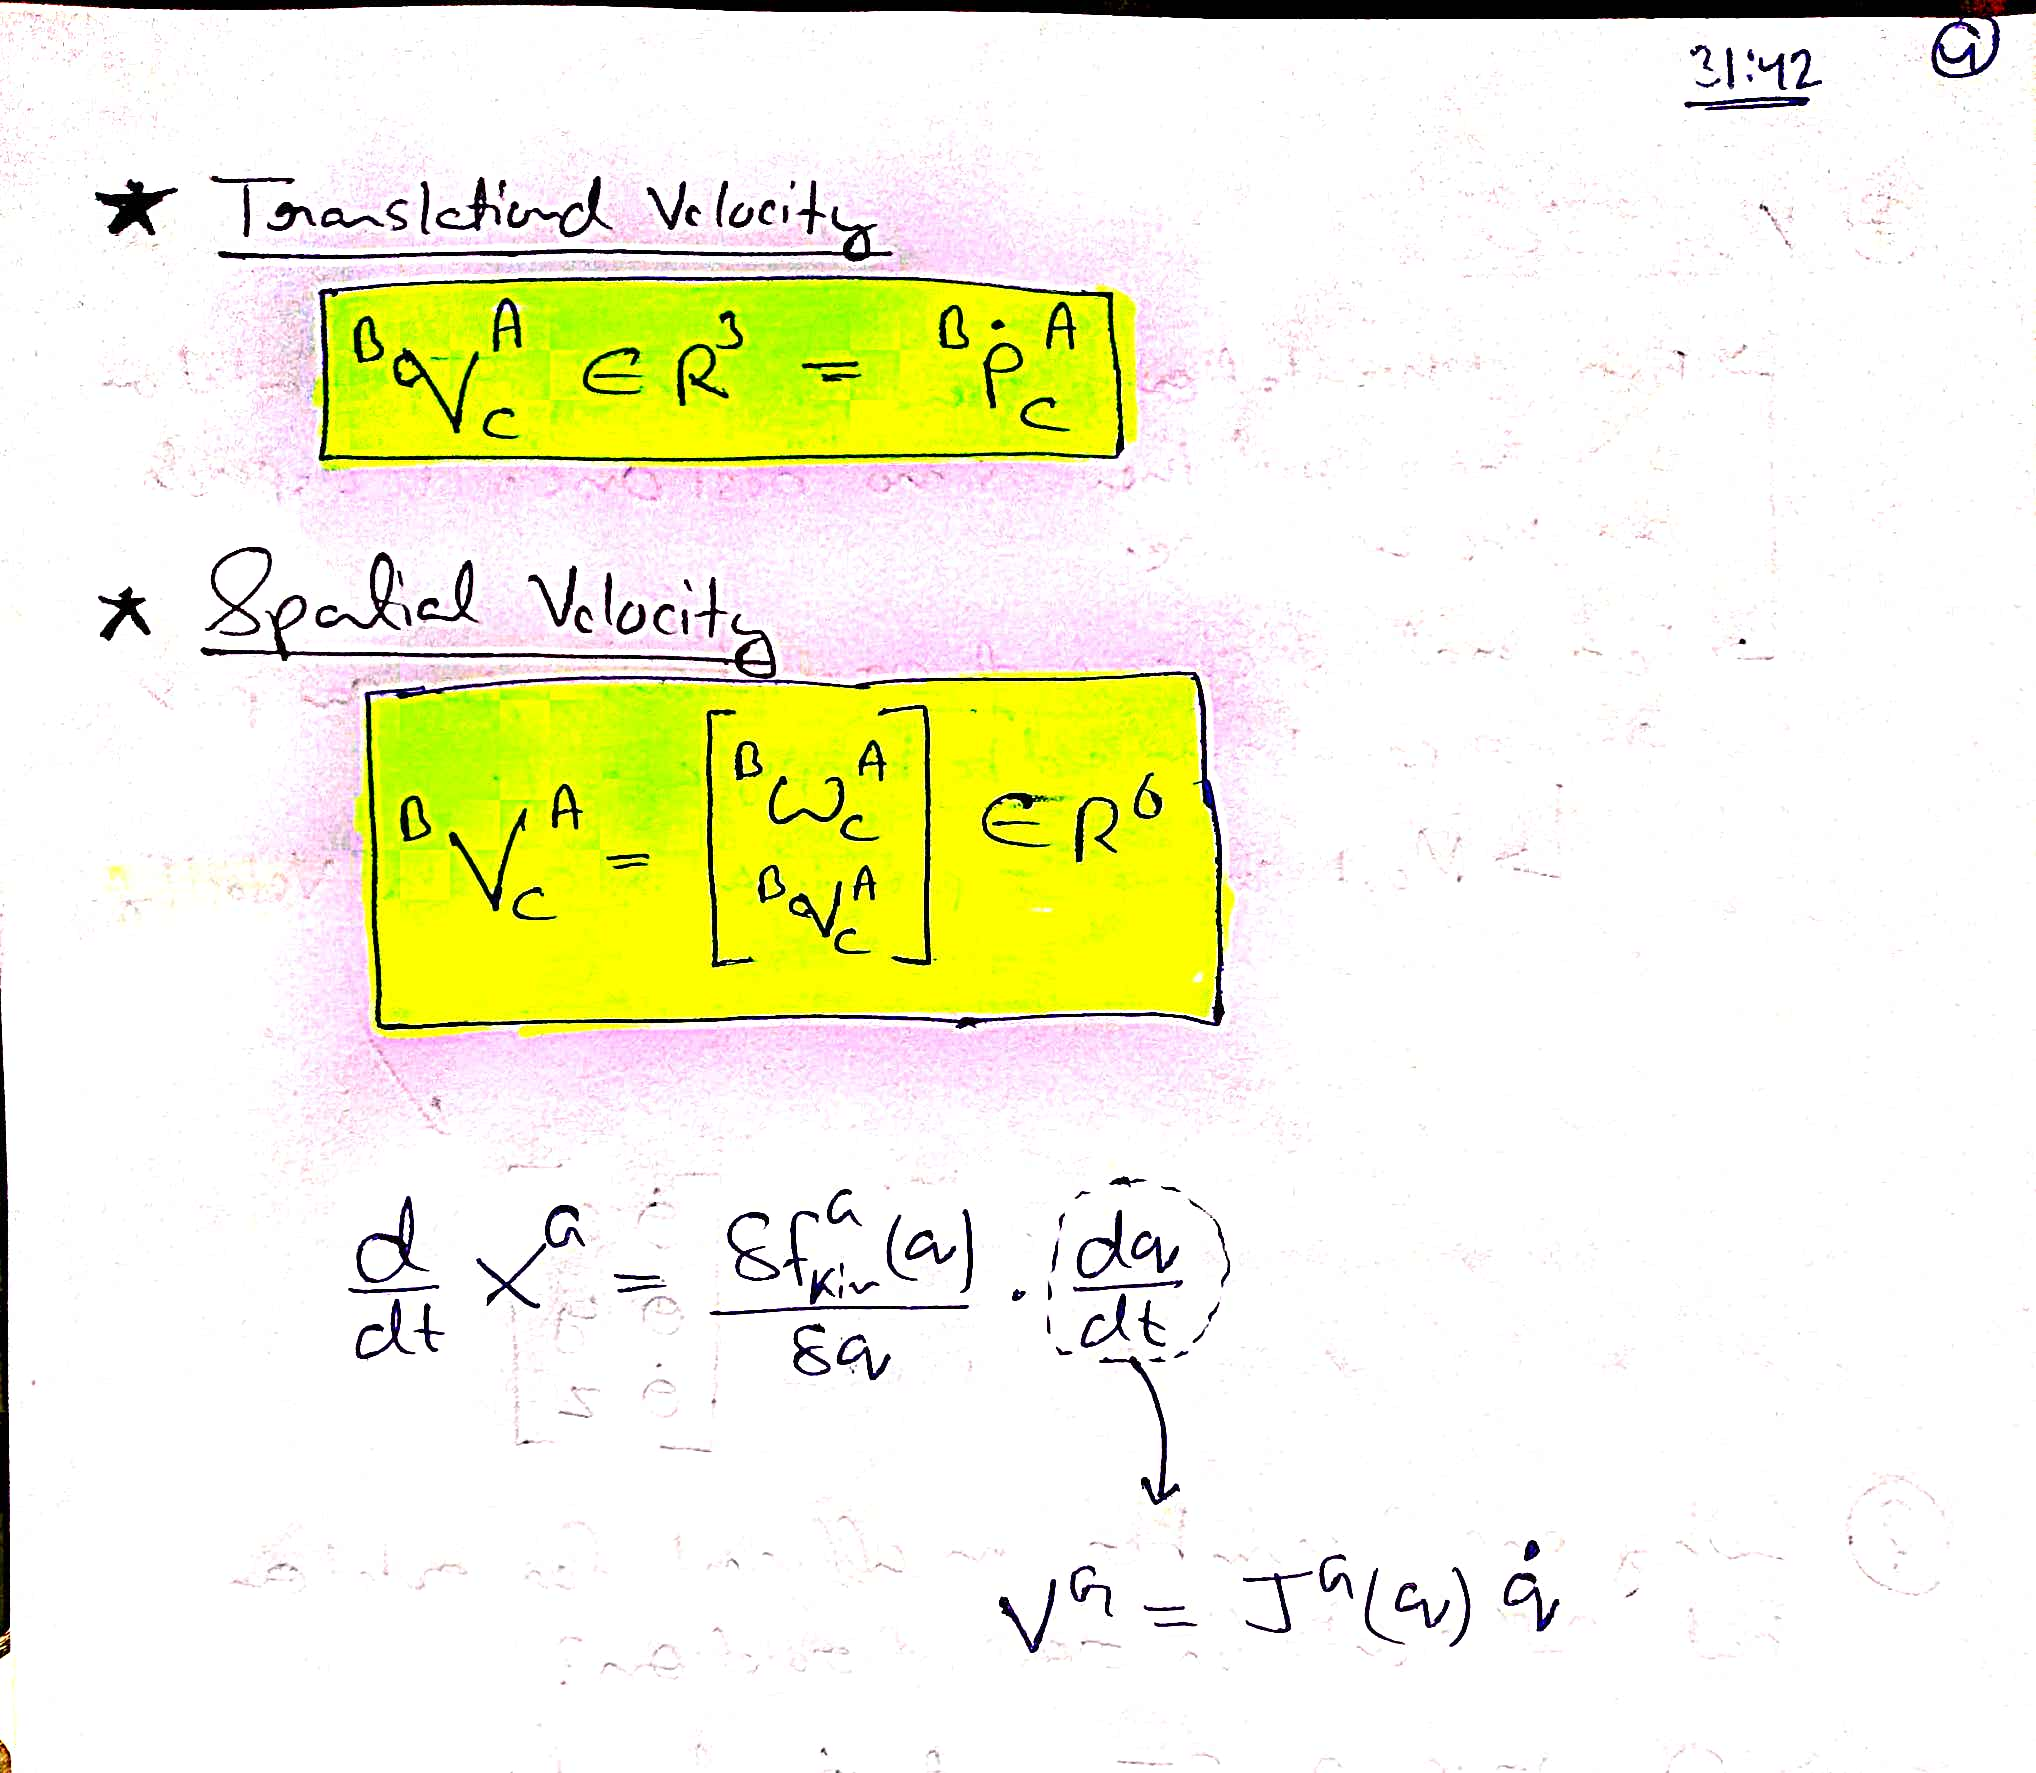 31:42 ④
★ Translational Velocity
ᴮvᴬ_C ∈ R³ = ᴮṗᴬ_C
★ Spatial Velocity
ᴮVᴬ_C = [ᴮωᴬ_C ; ᴮvᴬ_C] ∈ R⁶
d/dt X^G = δf^G_kin(q)/δq · dq/dt
V^G = J^G(q) q̇